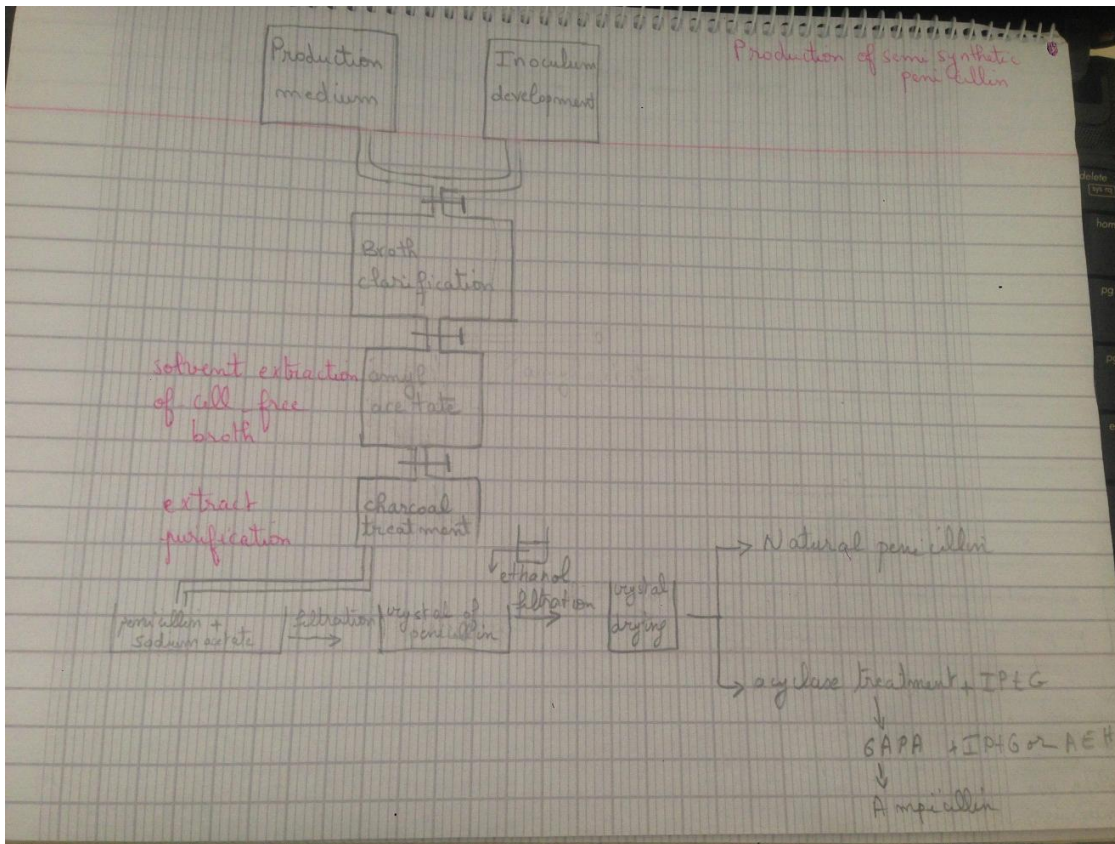 Production of semi synthetic
penicillin
Production
medium
Inoculum
development
Broth
clarification
solvent extraction
of cell free
broth
amyl
acetate
extract
purification
charcoal
treatment
penicillin +
sodium acetate
filtration
crystal of
penicillin
ethanol
filtration
crystal
drying
Natural penicillin
acylase treatment + IPtG
6APA + IPtG or AEH
Ampicillin
delete
home
pg